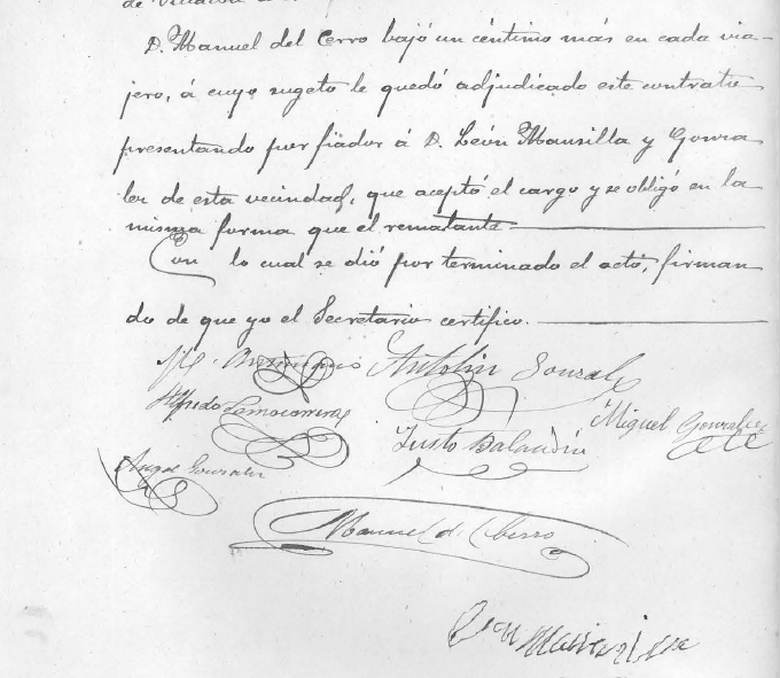 de
D. Manuel del Cerro bajó un céntimo más en cada via-
jero, á cuyo sugeto le quedó adjudicado este contrato
presentando por fiador á D. León Mansilla y Gonza
lez de esta vecindad, que aceptó el cargo y se obligó en la
misma forma que el rematante
Con lo cual se dió por terminado el acto, firman
do de que yo el Secretario certifico.
Antolin Gonzalez
Alfredo
Miguel Gonzalez
Justo Balandin
Angel Gonzalez
Manuel del Cerro
León Mansilla